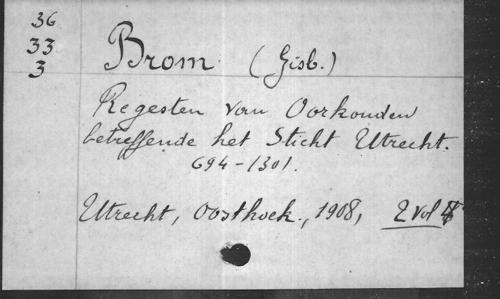 36
33
3
Brom (Gisb.)
Regesten van Oorkonden
betreffende het Sticht Utrecht.
694-1301.
Utrecht, Oosthoek., 1908, 2 vol